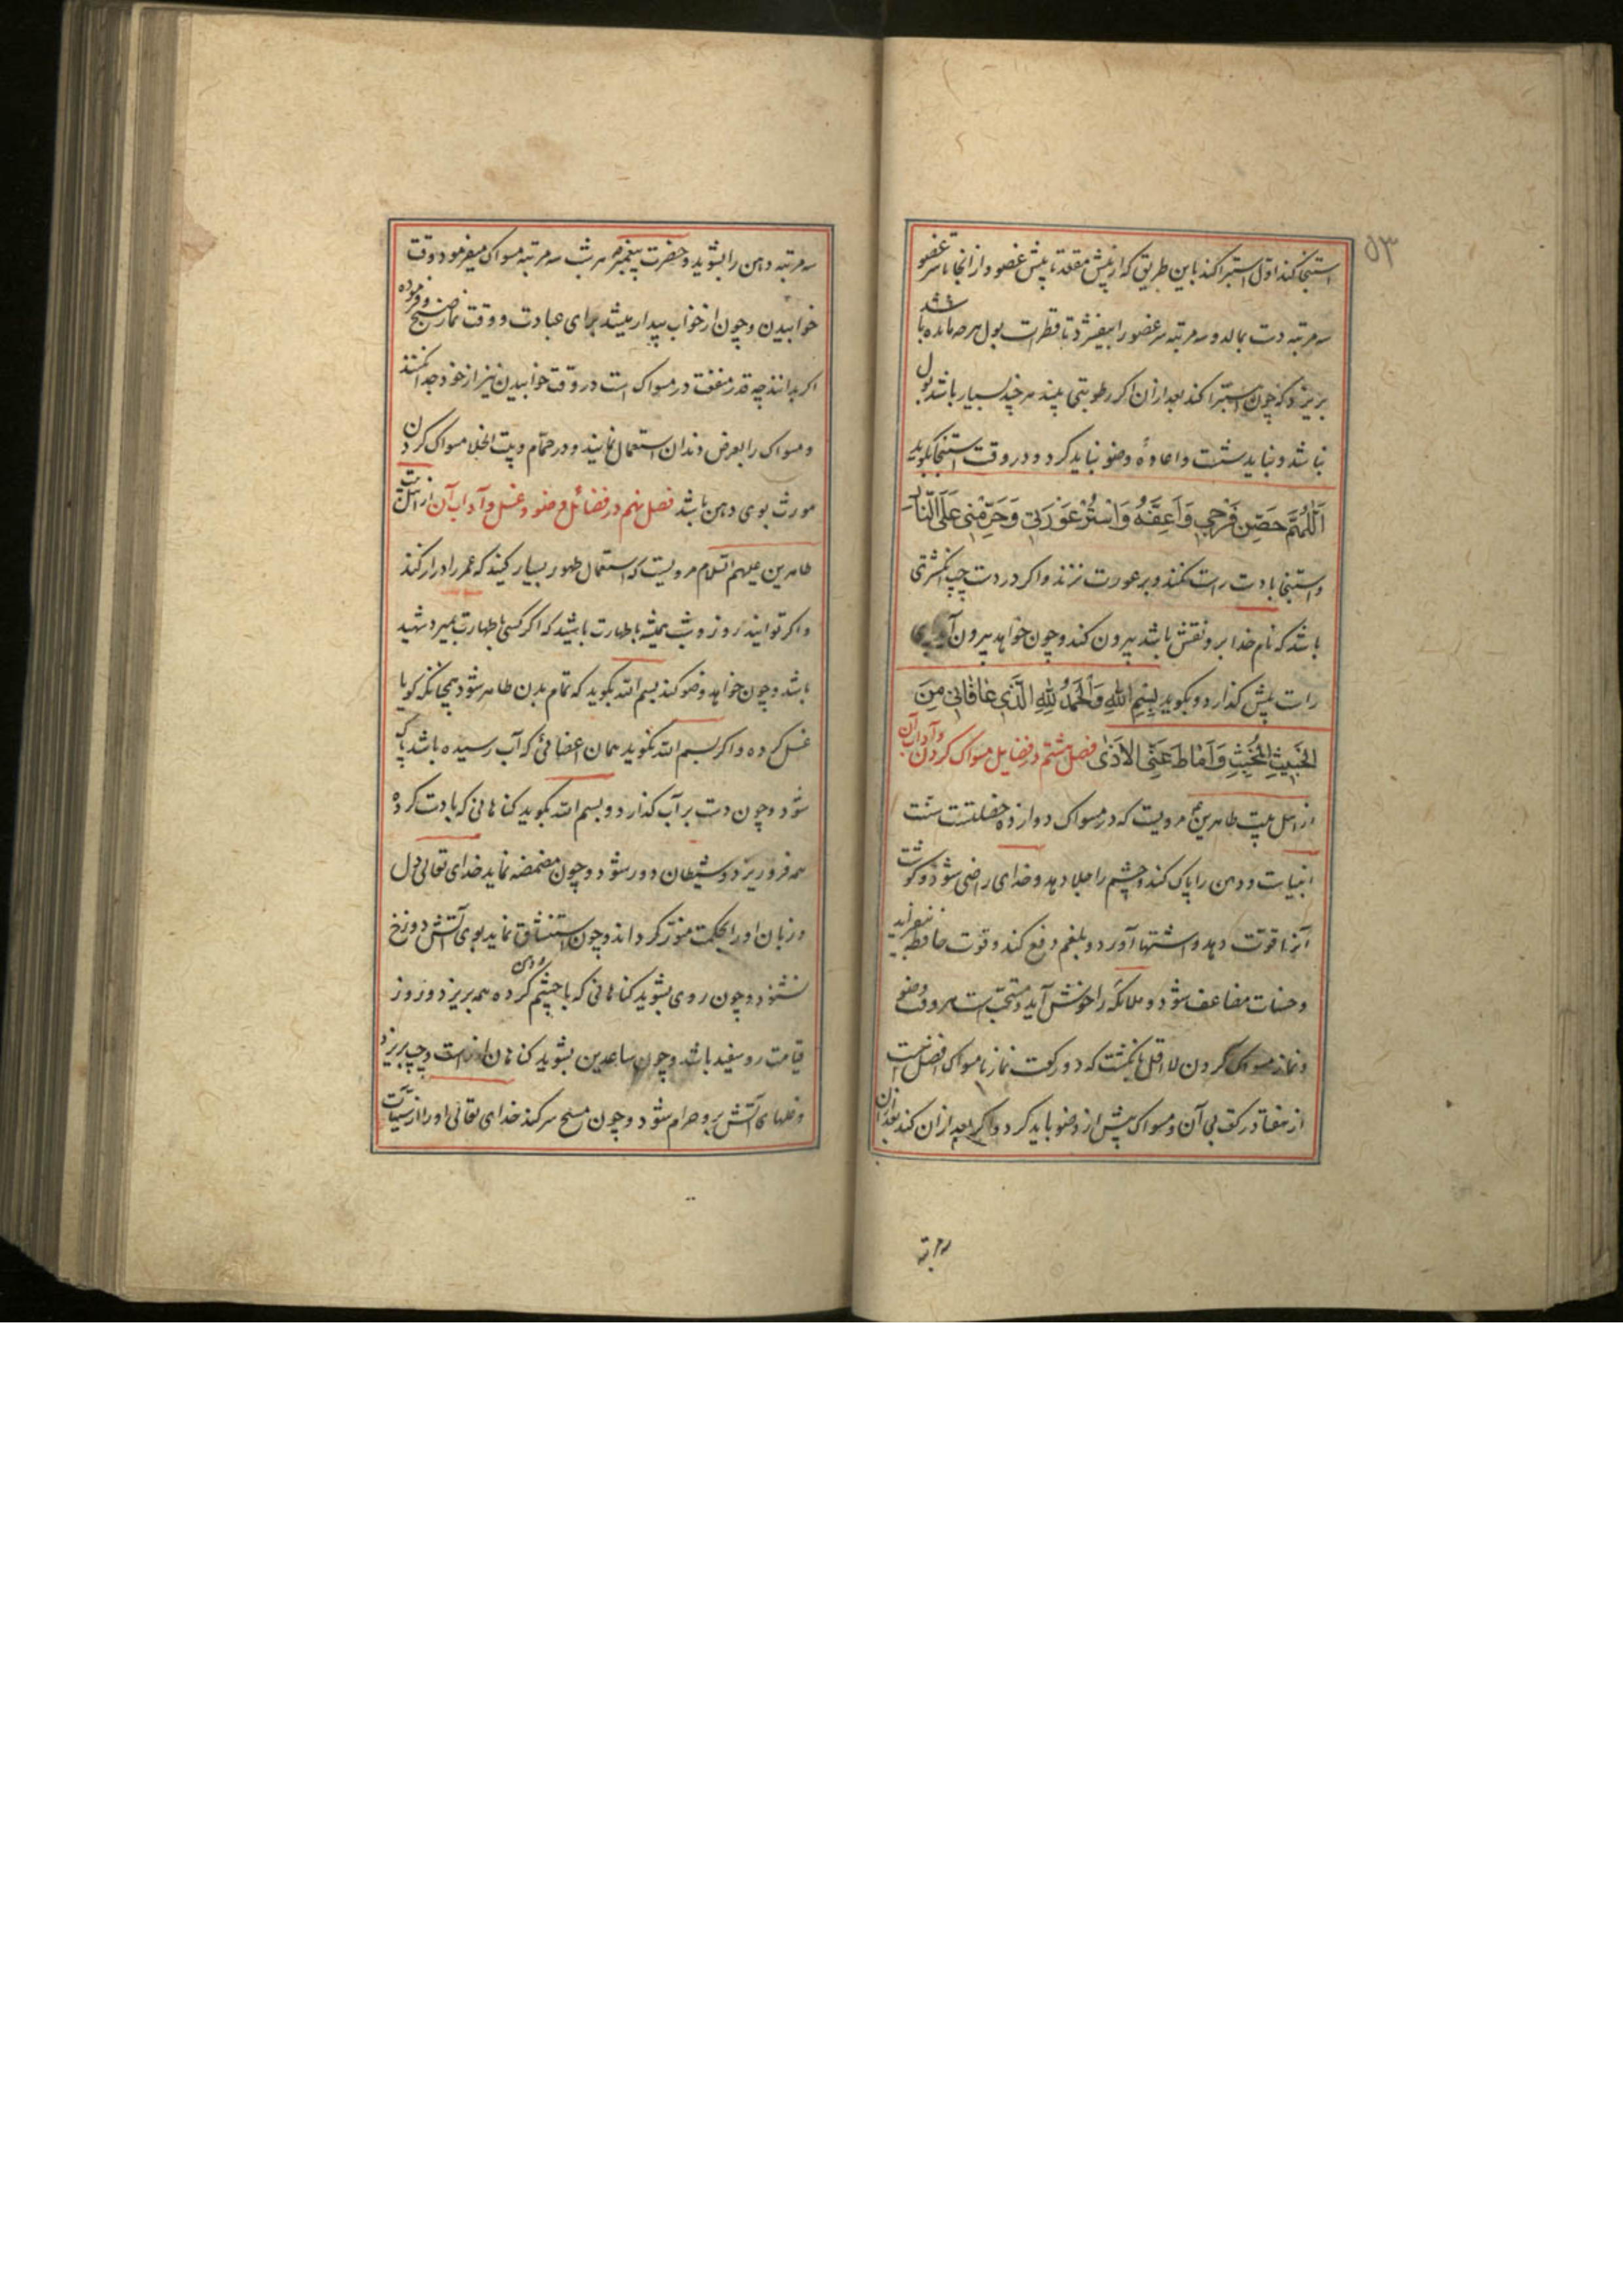 ۵۳
استنجا کند اول استبرا کند باین طریق که از پیش مقعد تا پیش عضو و از انجا تا سر عضو
سه مرتبه دست بمالد و سه مرتبه سر عضو را بیفشرد تا قطرات بول هر چه مانده باشد
بریزد که چون استبرا کند بعد از ان اگر رطوبتی بیند هر چند بسیار باشد بول
نباشد و نباید شست و اعادهٔ وضو نباید کرد و در وقت استنجا بگوید
اَللّٰهُمَّ حَصِّن فَرْجي وَاَعِفَّهُ وَاسْتُرْ عَوْرَتي وَحَرِّمْني عَلَى النّارِ
و استنجا بدست راست نکنند و بر عورت نزنند و اکر در دست چپ انکشتری
باشد که نام خدا برو نقش باشد بیرون کند و چون خواهد بیرون آید پای
راست پیش کذارد و بکوید بِسْمِ اللهِ وَالْحَمْدُ لِلهِ الَّذي عافاني مِنَ
الْخَبيثِ الْمُخْبِثِ وَاَماطَ عَنِّى الاَذىٰ فصل هشتم در فضایل مسواک کردن و آداب آن
از اهل بیت طاهرین ع مرویست که در مسواک دوازده خصلتست سنت
انبیاست و دهن را پاک کند و چشم را جلا دهد و خدای راضی شود و کوشت
قوت دهد و اشتها آورد و بلغم دفع کند و قوت حافظه بیفزاید
و حسنات مضاعف شود و ملائکه را خوش آید و مستحب است در وقت وضو
و نماز مسواک کردن لا اقل بانکشت که دو رکعت نماز با مسواک افضل است
از هفتاد رکعت بی آن و مسواک پیش از وضو باید کرد و اکر بعد از ان کند بعد از ان
سه مرتبه
سه مرتبه دهن را بشوید و حضرت پیغمبر ص هر شب سه مرتبه مسواک میفرمود وقت
خوابیدن و چون از خواب بیدار میشد برای عبادت و وقت نماز صبح و فرموده
اکر بدانند چه قدر منفعت در مسواک است در وقت خوابیدن نیز از خود جدا نکنند
و مسواک را بعرض دندان استعمال نمایند و در حمام و بیت الخلا مسواک کردن
مورث بوی دهن باشد فصل نهم در فضائل وضو و غسل و آداب آن از اهل بیت
طاهرین علیهم السلام مرویست که استعمال طهور بسیار کنید که عمر را دراز کند
و اکر توانید روز و شب همیشه با طهارت باشید که اکر کسی با طهارت بمیرد شهید
باشد و چون خواهد وضو کند بسم الله بکوید که تمام بدن طاهر شود همچنانکه کویا
غسل کرده و اکر بسم الله نکوید همان اعضائی که آب رسیده باشد پاک
شود و چون دست بر آب کذارد و بسم الله بکوید کناهانی که بادست کرده
همه فرو ریزد و شیطان دور شود و چون مضمضه نماید خدای تعالی دل
و زبان او را بحکمت منور کرداند و چون استنشاق نماید بوی آتش دوزخ
نشنود و چون روی بشوید کناهانی که با چشم و دهن کرده همه بریزد و روز
قیامت رو سفید باشد و چون ساعدین بشوید کناهان از راست و چپ بریزد
و غلهای آتش برو حرام شود و چون مسح سر کند خدای تعالی او را از سیئات